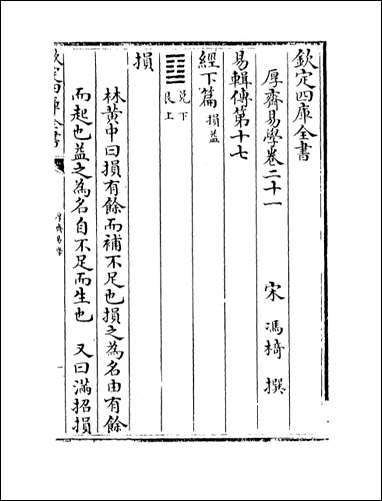 欽定四庫全書
厚齋易學卷二十一
宋 馮椅 撰
易輯傳第十七
經下篇 損益
兌下
艮上
損
林黃中曰損有餘而補不足也損之為名由有餘
而起也益之為名自不足而生也 又曰滿招損
欽定四庫全書
厚齋易學
一